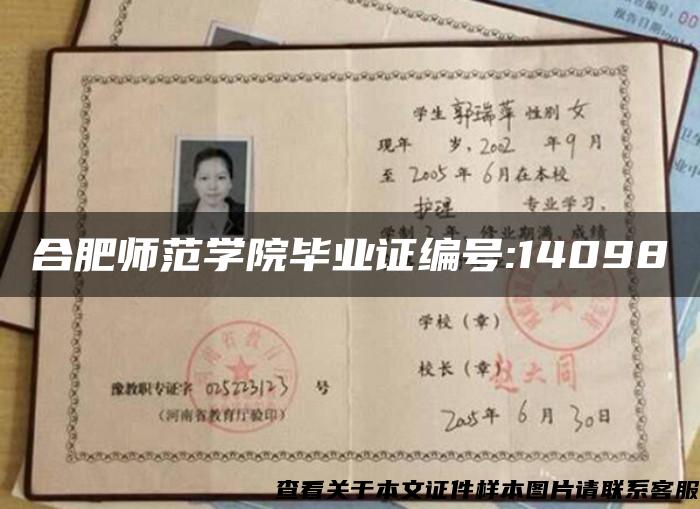 学生 郭瑞萍 性别 女
现年 岁,2002 年 9 月
至 2005 年 6 月在本校
护理 专业学习,
学制 3 年,修业期满,成绩
合肥师范学院毕业证编号:14098
学校（章）
校长（章）赵大同
豫教职专证字 025223123 号
（河南省教育厅验印）
2005年 6 月 30日
查看关于本文证件样本图片请联系客服